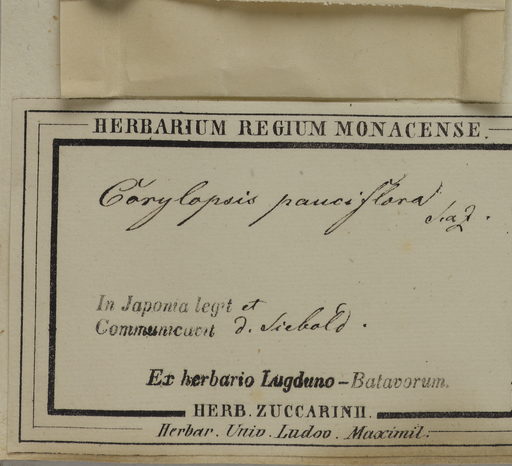 HERBARIUM REGIUM MONACENSE.
Corylopsis pauciflora
S. et Z.
In Japonia legit et
Communicavit d. Siebold.
Ex herbario Lugduno-Batavorum.
HERB. ZUCCARINII.
Herbar. Univ. Ludov. Maximil.